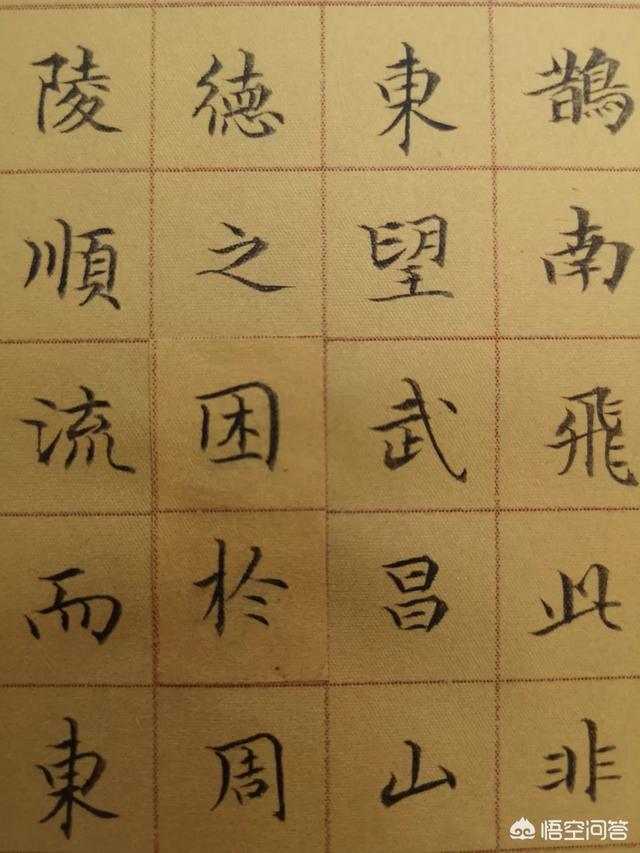 鵲南飛此非
東望武昌山
德之困於周
陵順流而東
悟空问答